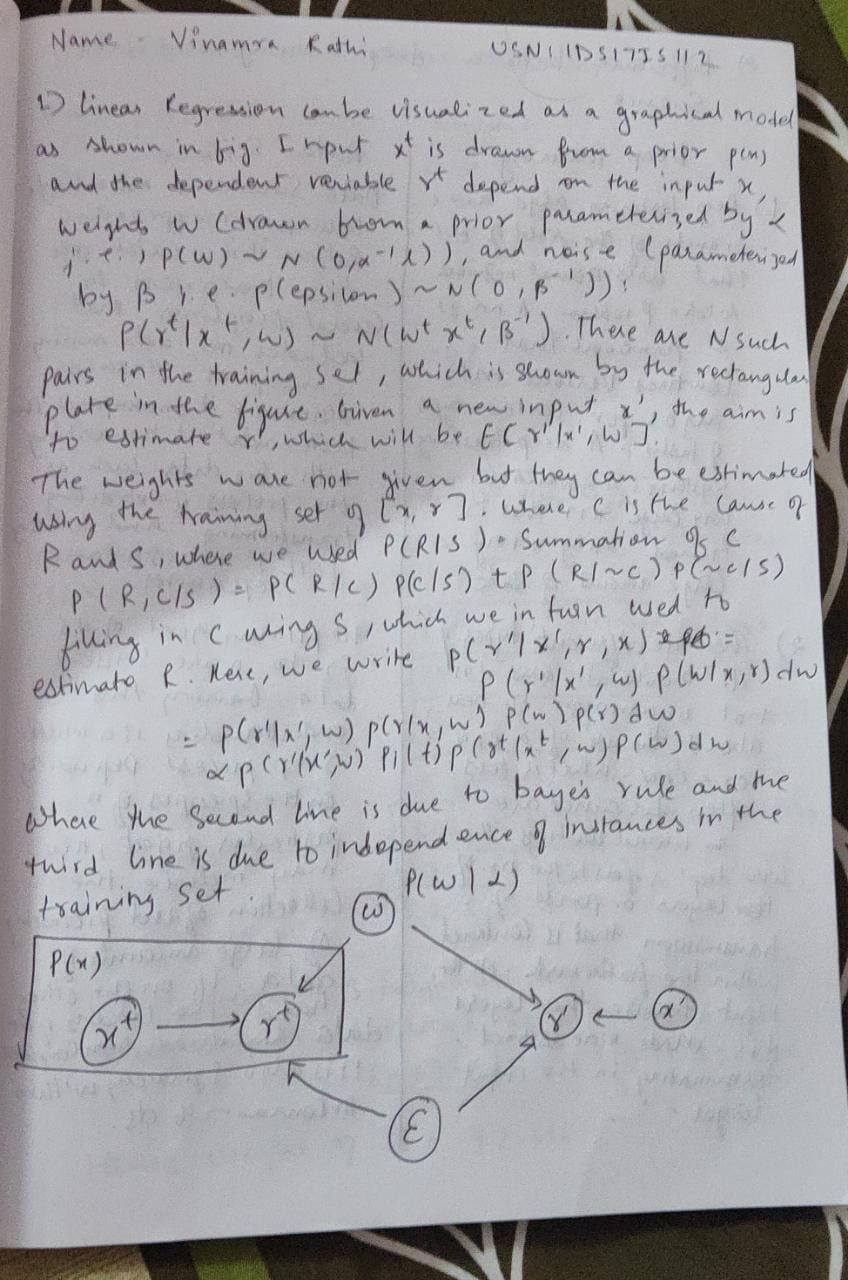 Name - Vinamra Rathi USN: 1DS17IS112
1) Linear Regression can be visualized as a graphical model
as shown in fig. Input xᵗ is drawn from a prior p(x)
and the dependent variable rᵗ depend on the input x,
weights w (drawn from a prior parameterized by α
i.e., p(w) ~ N(0, α⁻¹I)), and noise (parameterized
by β i.e. p(epsilon) ~ N(0, β⁻¹)):
P(rᵗ|xᵗ, w) ~ N(wᵗxᵗ, β⁻¹). There are N such
pairs in the training set, which is shown by the rectangular
plate in the figure. Given a new input x', the aim is
to estimate r', which will be E[r'|x', w].
The weights w are not given but they can be estimated
using the training set of [x, r]. Where C is the cause of
R and S, where we used P(R|S) = Summation of C
P(R, C|S) = P(R|C) P(C|S) + P(R|~C) P(~C|S)
filling in C using S, which we in turn used to
estimate R. Here, we write p(r'|x', r, x) =
p(r'|x', w) p(w|x, r) dw
= p(r'|x', w) p(r|x, w) p(w) p(r) dw
∝ p(r'|x', w) Pi(t) p(rᵗ|xᵗ, w) p(w) dw
Where the second line is due to baye's rule and the
third line is due to independence of instances in the
training set.
P(w|α)
w
P(x)
xᵗ rᵗ r' x'
ε